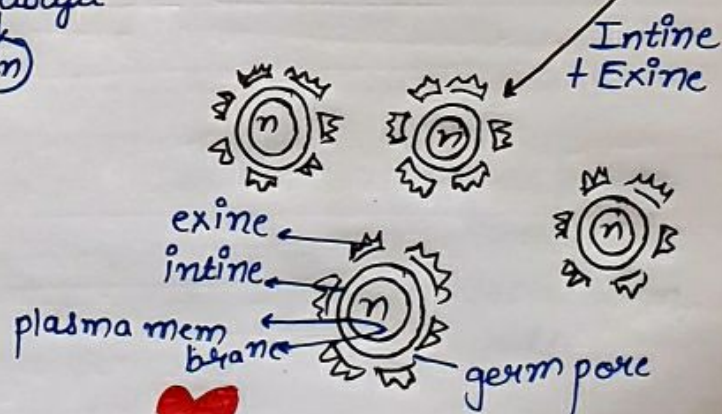 n
Intine
+ Exine
n
n
n
exine
intine
n
plasma mem
brane
germ pore